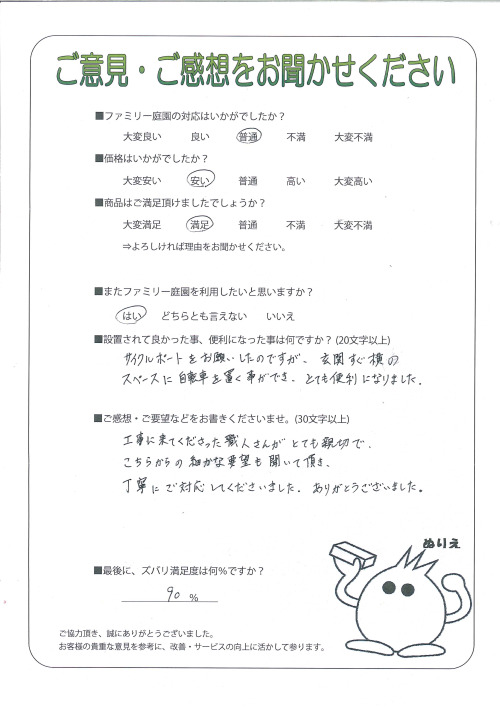 ご意見・ご感想をお聞かせください
■ファミリー庭園の対応はいかがでしたか？
大変良い 良い 普通 不満 大変不満
■価格はいかがでしたか？
大変安い 安い 普通 高い 大変高い
■商品はご満足頂けましたでしょうか？
大変満足 満足 普通 不満 大変不満
⇒よろしければ理由をお聞かせください。
■またファミリー庭園を利用したいと思いますか？
はい どちらとも言えない いいえ
■設置されて良かった事、便利になった事は何ですか？(20文字以上)
サイクルポートをお願いしたのですが、玄関すぐ横の
スペースに自転車を置く事ができ、とても便利になりました。
■ご感想・ご要望などをお書きくださいませ。(30文字以上)
工事に来てくださった職人さんがとても親切で、
こちらからの細かな要望も聞いて頂き、
丁寧にご対応してくださいました。ありがとうございました。
ぬりえ
■最後に、ズバリ満足度は何％ですか？
90 %
ご協力頂き、誠にありがとうございました。
お客様の貴重な意見を参考に、改善・サービスの向上に活かして参ります。